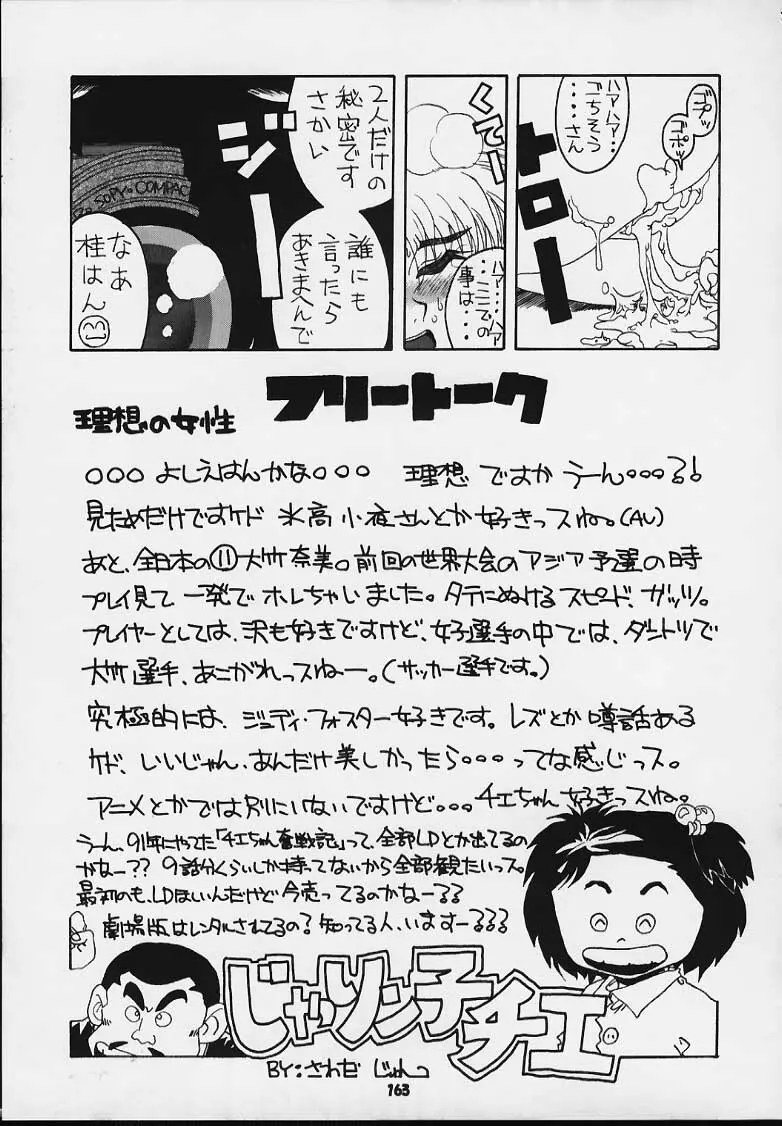 ゴプッ
ゴポッ
ハァハァ・・・
・・・ごちそう
さん
トロー
くてー
ハァ・・・ハァ
・・ここでの
事は・・・
2人だけの
秘密です
さかい
誰にも
言ったら
あきまへんで
ジー
COMPAC
なあ
桂はん
フリートーク
理想の女性
○○○よしえはんかな○○○ 理想ですかうーん・・・る!
見ためだけですケド 氷高小夜さんとか好きっスね。(AV)
あと、全日本の⑪大竹奈美。前回の世界大会のアジア予選の時
プレイ見て一発でホレちゃいました。タテにぬけるスピード、ガッツ。
プレイヤーとしては、沢も好きですけど、女子選手の中では、ダントツで
大竹選手、あこがれっスねー。(サッカー選手です。)
究極的には、ジュディ・フォスター好きです。レズとか噂話ある
ケド、いいじゃん、あんだけ美しかったら・・・ってな感じっス。
アニメとかでは別にいないですけど・・・チエちゃん好きっスね。
うーん、91年にやった「チエちゃん奮戦記」って、全部LDとか出てるの
かなー?? 9話分くらいしか持ってないから全部観たいっス。
最初のも、LDほしいんだけど今売ってるのかなーるる
劇場版はレンタルされてるの?知ってる人、いますーるるる
じゃリン子チエ
BY:さわだ じゅんこ
163